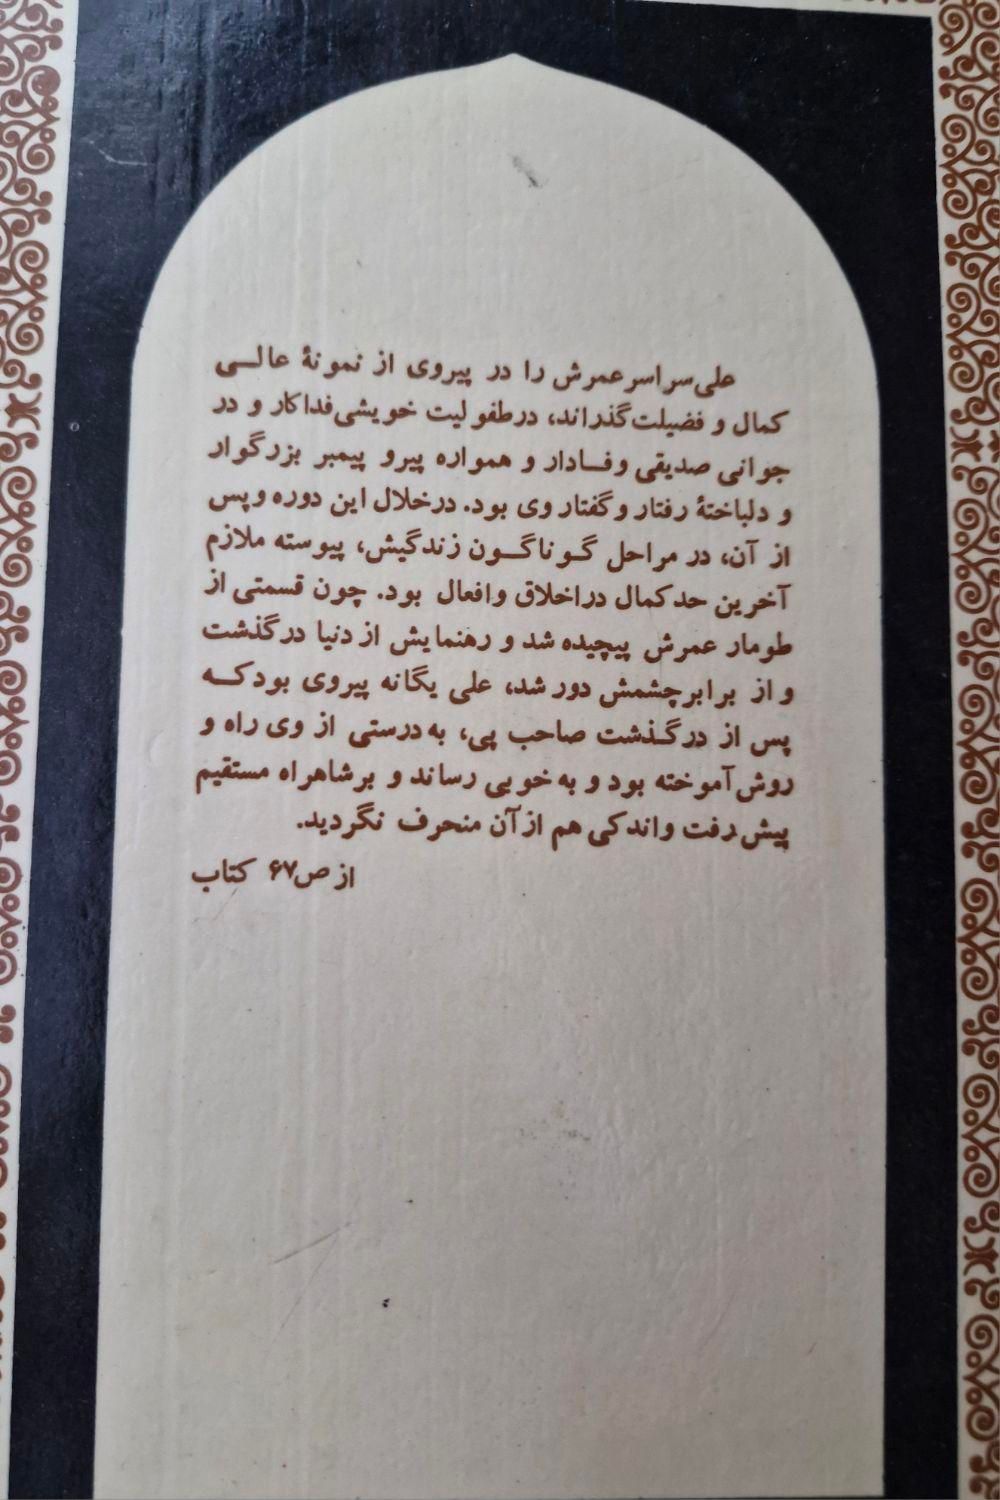 علی سراسر عمرش را در پیروی از نمونهٔ عالی
کمال و فضیلت گذراند، در طفولیت خویشی فداکار و در
جوانی صدیقی وفادار و همواره پیرو پیمبر بزرگوار
و دلباختهٔ رفتار و گفتار وی بود. در خلال این دوره و پس
از آن، در مراحل گوناگون زندگیش، پیوسته ملازم
آخرین حد کمال در اخلاق و افعال بود. چون قسمتی از
طومار عمرش پیچیده شد و رهنمایش از دنیا درگذشت
و از برابر چشمش دور شد، علی یگانه پیروی بود که
پس از درگذشت صاحب پی، به درستی از وی راه و
روش آموخته بود و به خوبی رساند و بر شاهراه مستقیم
پیش رفت و اندکی هم از آن منحرف نگردید.
از ص ۶۷ کتاب